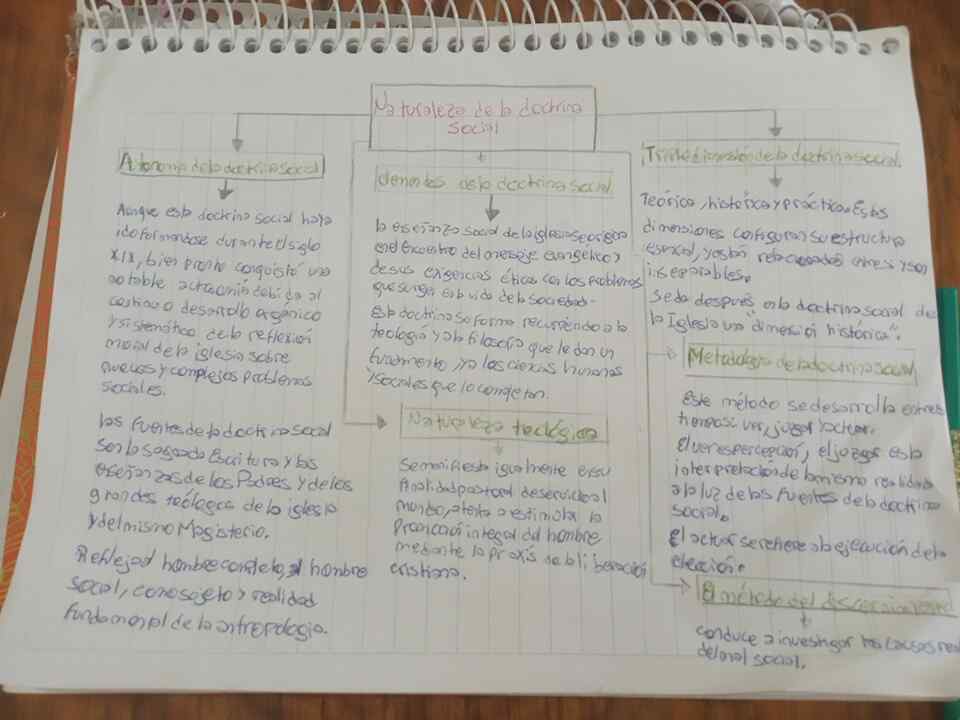 Naturaleza de la doctrina
social
Autonomia de la doctrina social
Aunque esta doctrina social haya
ido formandose durante el siglo
XIX, bien pronto conquistó una
notable autonomía debida al
continuo desarrollo orgánico
y sistemático de la reflexión
moral de la iglesia sobre
nuevos y complejos problemas
sociales.
Las fuentes de la doctrina social
son la sagrada Escritura y las
enseñanzas de los Padres y de los
grandes teólogos de la iglesia
y del mismo Magisterio.
Refleja al hombre completo, al hombre
social, como sujeto y realidad
fundamental de la antropologia.
de la doctrina social
la enseñanza social de la iglesia se origina
en el encuentro del mensaje evangelico y
de sus exigencias éticas con los problemas
que surgen en la vida de la sociedad.
Esta doctrina se forma recurriendo a la
teología y a la filosofía que le dan un
fundamento, y a las ciencias humanas
y sociales que lo completan.
Naturaleza teológica
Se manifiesta igualmente en su
finalidad pastoral de servicio al
mundo, atenta a estimular la
promoción integral del hombre
mediante la praxis de la liberación
cristiana.
Triple dimensión de la doctrina social.
Teórica, histórica y práctica. Estas
dimensiones configuran su estructura
esencial, y están relacionadas entre sí y son
inseparables.
Se da después en la doctrina social de
la Iglesia una "dimensión histórica".
Metodologia de la doctrina social
Este método se desarrolla en tres
tiempos: ver, juzgar y actuar.
El ver es percepción, el juzgar es la
interpretación de la misma realidad
a la luz de las fuentes de la doctrina
social.
El actuar se refiere a la ejecución de la
elección.
El método del discernimiento
conduce a investigar las causas
del mal social.